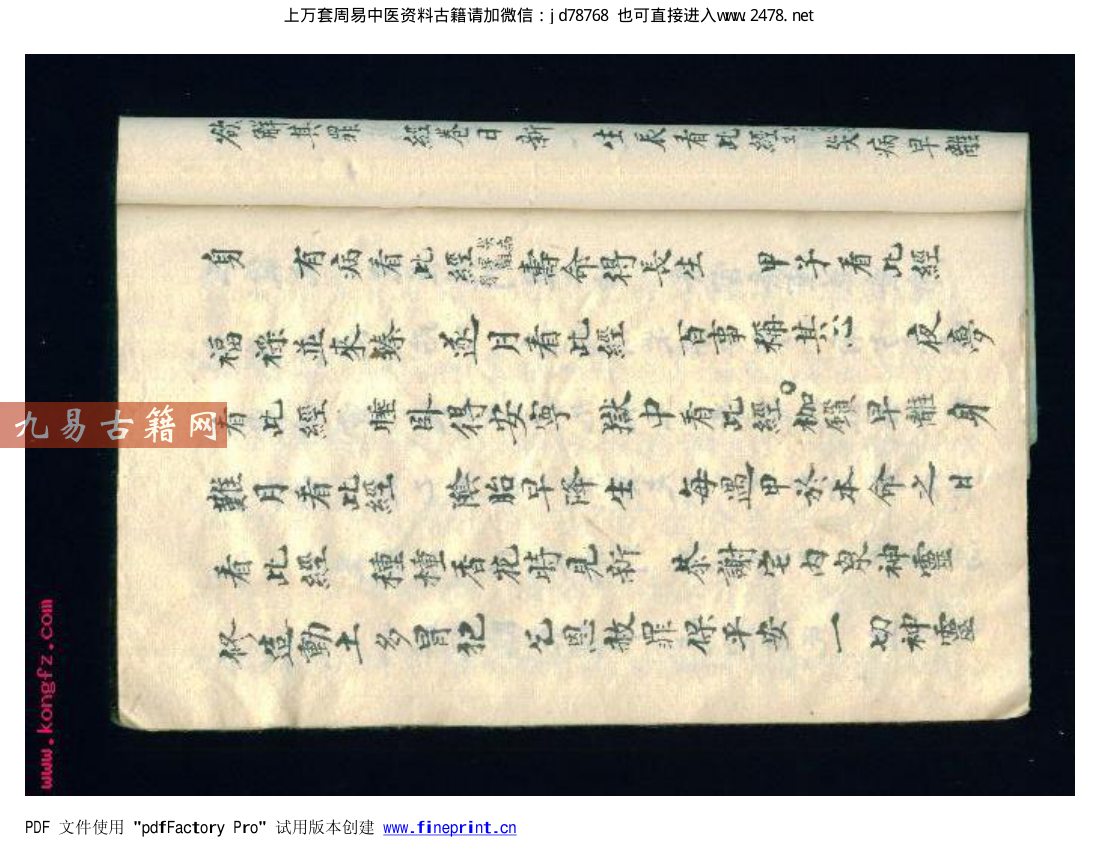 上万套周易中医资料古籍请加微信：jd78768 也可直接进入www.2478.net
欲解其罪 經卷日新 生辰看此經 災病早離
身 有病看此經 壽命得長生 甲子看此經
福祿並來臻 逐月看此經 百事稱其心 夜夢
看此經 睡臥得安寧 獄中看此經 枷鎖早離身
難月看此經 陰胎早降生 每遇甲於本命之日
看此經 種種香花時見新 恭謝宅內衆神靈
修造動土多冒犯 乞恩赦罪保平安 一切神靈
九易古籍网
www.kongfz.com
PDF 文件使用 "pdfFactory Pro" 试用版本创建 www.fineprint.cn